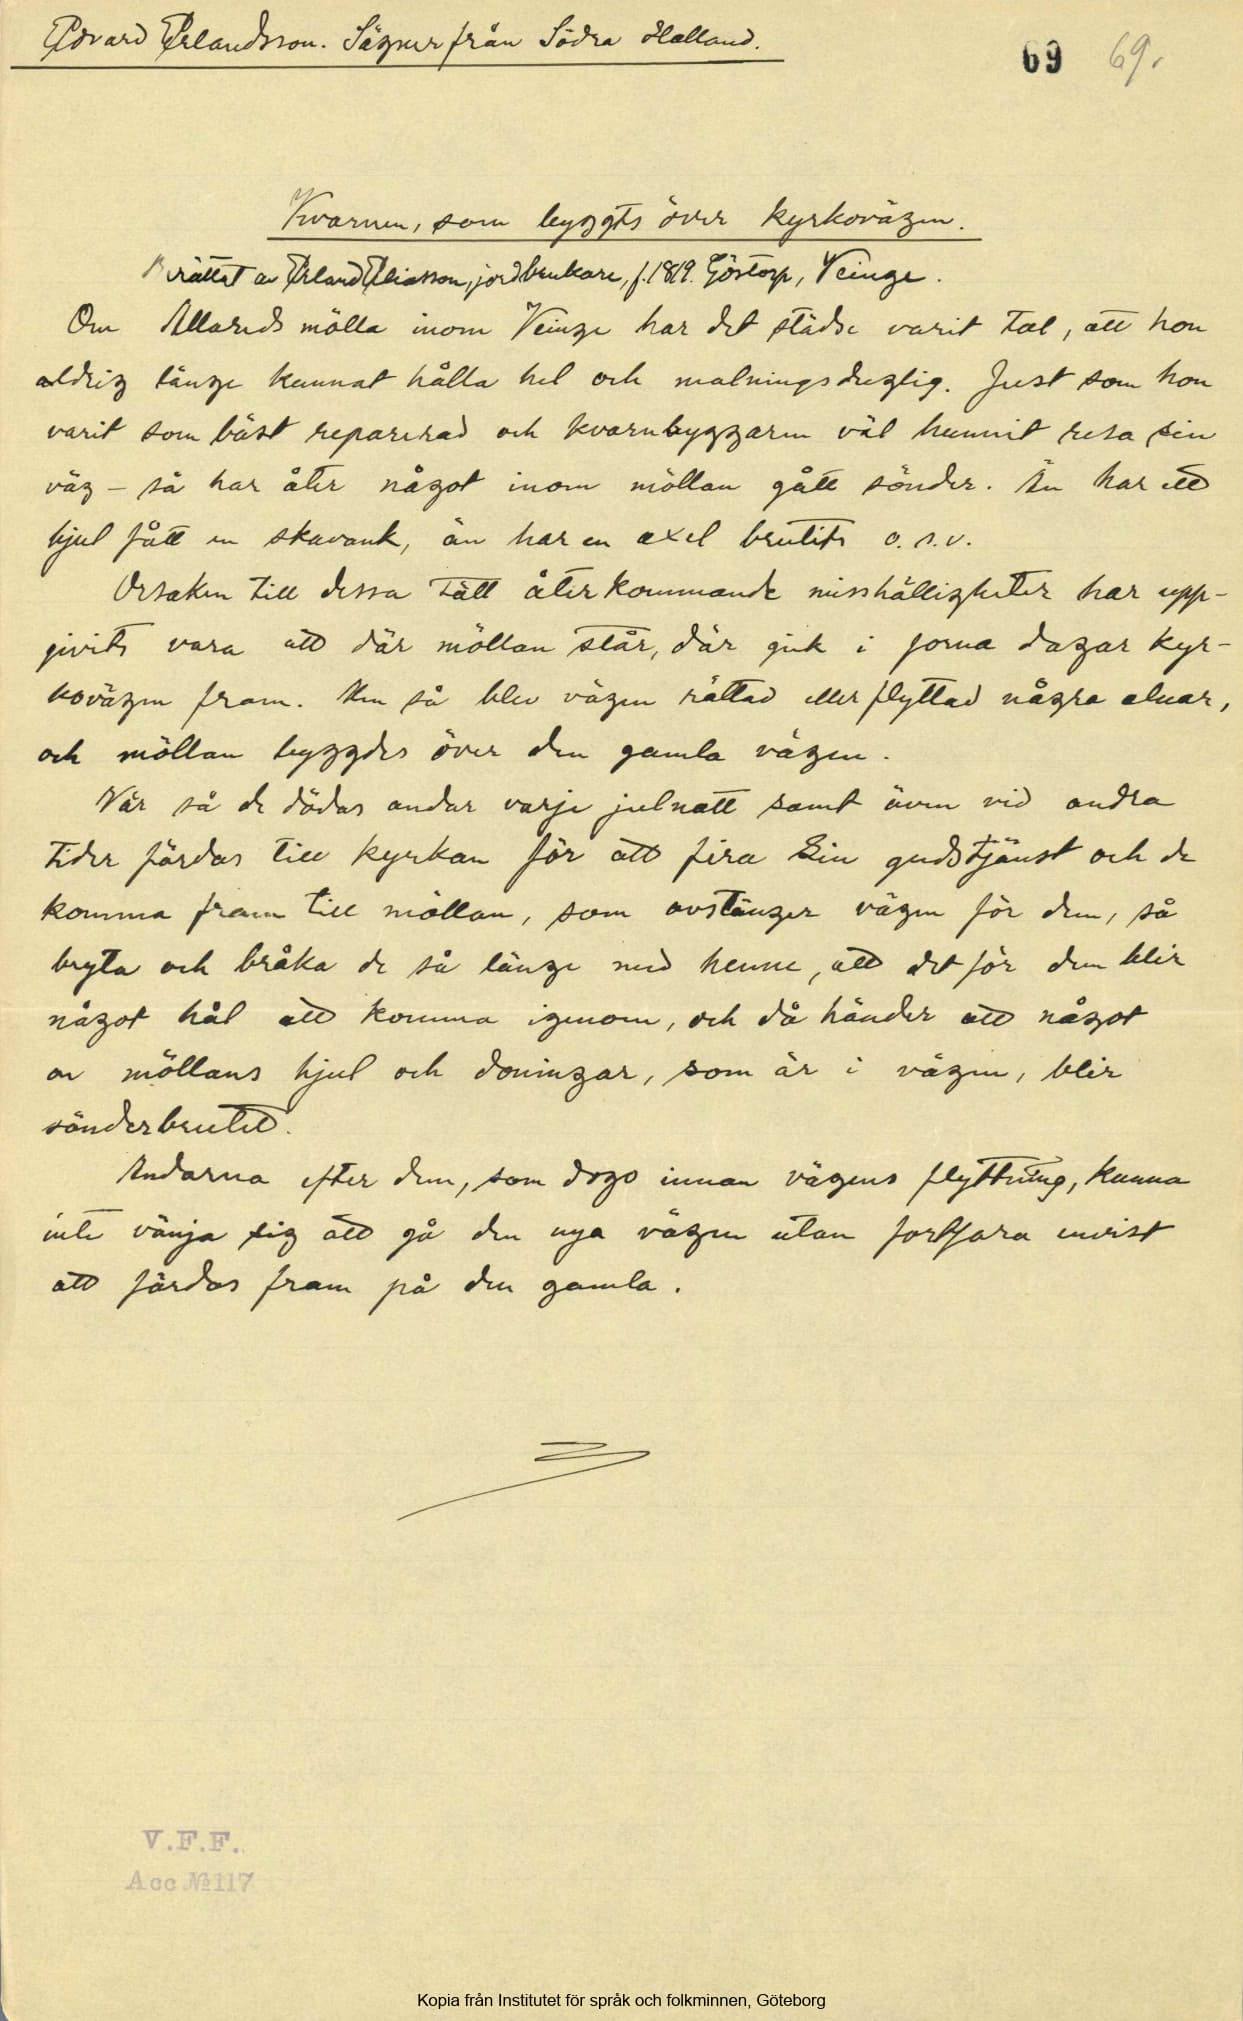 Edvard Erlandsson. Sägner från Södra Halland.
69 69.
Kvarnen, som byggts över kyrkovägen.
Berättat av Erland Eliasson, jordbrukare, f. 1819. Göstorp, Veinge.
Om Allareds mölla inom Veinge har det städse varit tal, att hon
aldrig länge kunnat hålla hel och malningsduglig. Just som hon
varit som bäst reparerad och kvarnbyggaren väl hunnit resa sin
väg – så har åter något inom möllan gått sönder. Än har ett
hjul fått en skavank, än har en axel brutits o.s.v.
Orsaken till dessa tätt återkommande misshälligheter har upp-
givits vara att där möllan står, där gick i forna dagar kyr-
kovägen fram. Men så blev vägen rättad eller flyttad några alnar,
och möllan byggdes över den gamla vägen.
När så de dödas andar varje julnatt samt även vid andra
tider färdas till kyrkan för att fira sin gudstjänst och de
komma fram till möllan, som avstänger vägen för dem, så
bryta och bråka de så länge med henne, att det för dem blir
något hål att komma igenom, och då händer att något
av möllans hjul och doningar, som är i vägen, blir
sönderbrutet.
Andarna efter dem, som dogo innan vägens flyttning, kunna
inte vänja sig att gå den nya vägen utan fortfara envist
att färdas fram på den gamla.
V.F.F.
Acc №117
Kopia från Institutet för språk och folkminnen, Göteborg